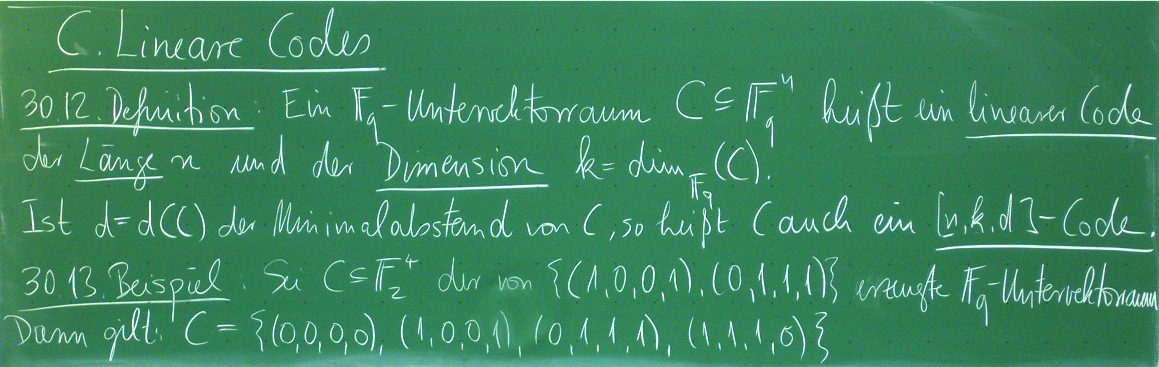 C. Lineare Codes
30.12. Definition: Ein 𝔽_q-Untervektorraum C ⊆ 𝔽_q^n heißt ein linearer Code
der Länge n und der Dimension k = dim_{𝔽_q}(C).
Ist d = d(C) der Minimalabstand von C, so heißt C auch ein [n,k,d]-Code.
30.13. Beispiel: Sei C ⊆ 𝔽_2^4 der von {(1,0,0,1), (0,1,1,1)} erzeugte 𝔽_q-Untervektorraum
Dann gilt: C = {(0,0,0,0), (1,0,0,1), (0,1,1,1), (1,1,1,0)}